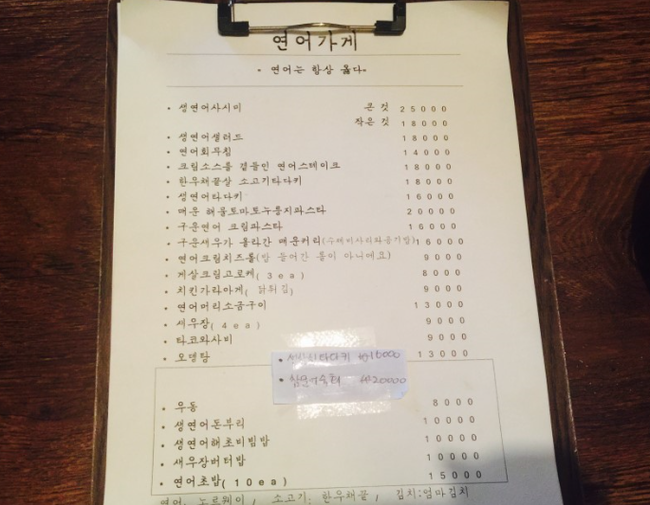 연어가게
• 연어는 항상 옳다•
• 생연어사시미 큰 것 25000
작은 것 18000
• 생연어샐러드 18000
• 연어회무침 14000
• 크림소스를 곁들인 연어스테이크 18000
• 한우채끝살 소고기타다키 18000
• 생연어타다키 16000
• 매운 해물토마토누룽지파스타 20000
• 구운연어 크림파스타 16000
• 구운새우가 올라간 매운커리(수제비사리와공기밥) 16000
• 연어크림치즈롤(밥 들어간 롤이 아니에요) 9000
• 게살크림고로케(3ea) 8000
• 치킨가라아게( 닭튀김) 9000
• 연어머리소금구이 13000
• 새우장(4ea) 9000
• 타코와사비 9000
• 오뎅탕 13000
타다키 ₩16000
₩20000
• 우동 8000
• 생연어돈부리 10000
• 생연어해초비빔밥 10000
• 새우장버터밥 10000
• 연어초밥(10ea) 15000
연어: 노르웨이, 소고기: 한우채끝, 김치:엄마김치